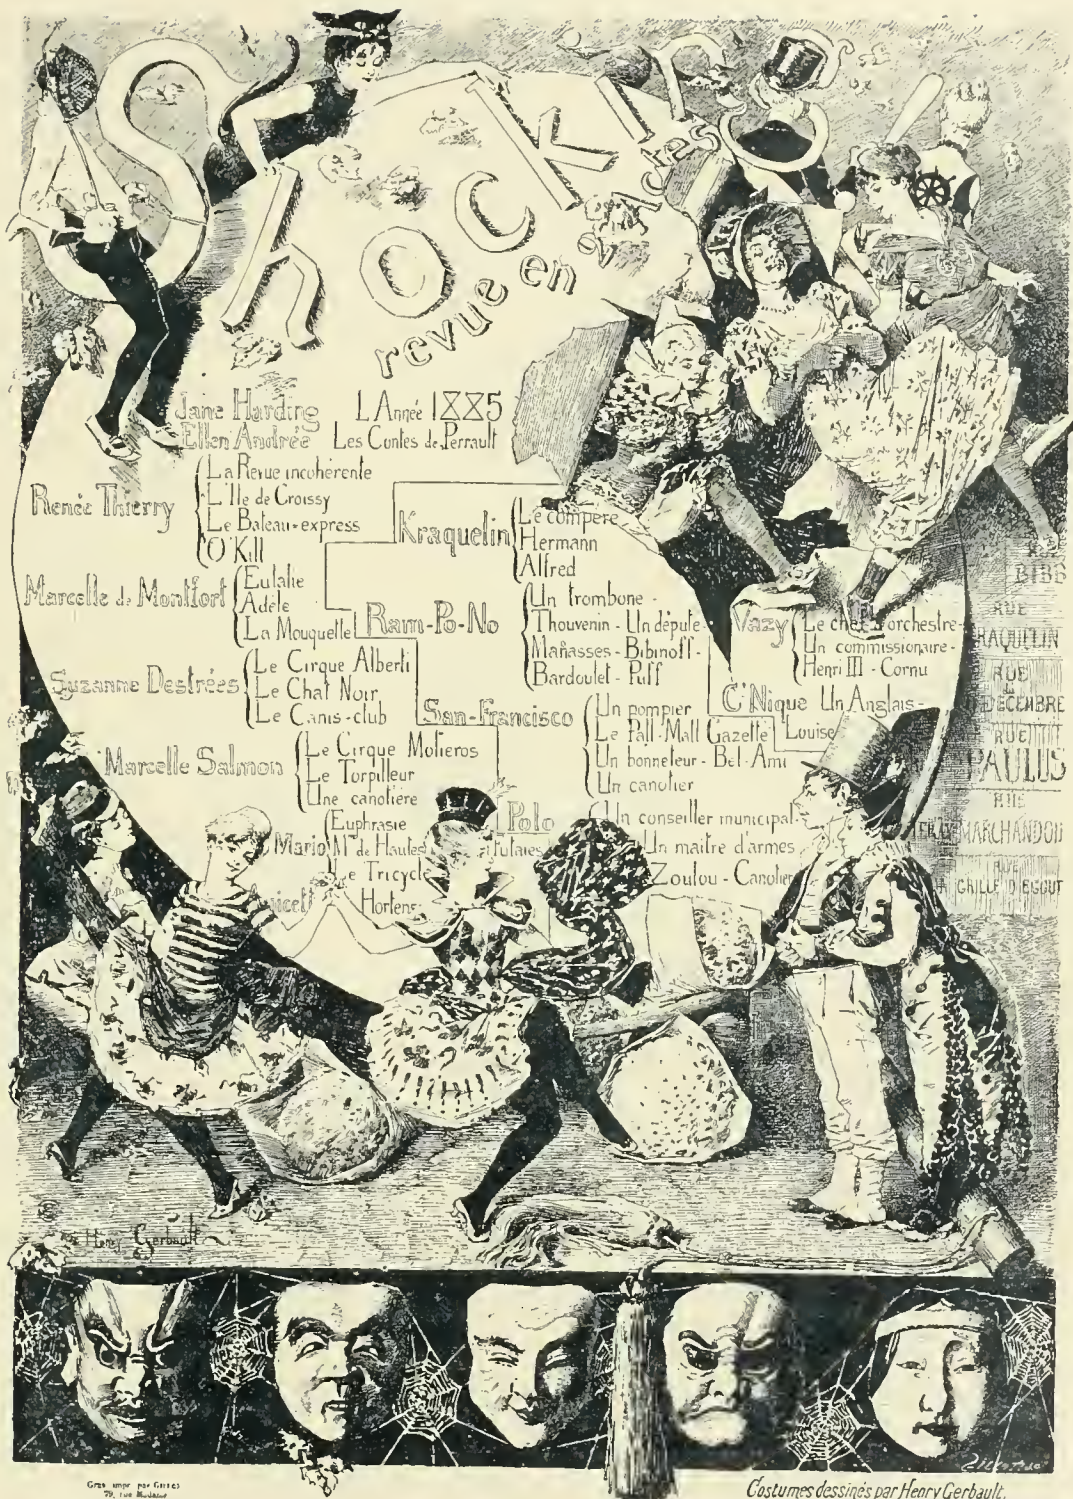 ShOCKINGS
revue en 2 Actes
Jane Harding L'Année 1885
Ellen Andrée Les Contes de Perrault
Renée Thierry
La Revue incohérente
L'Ile de Croissy
Le Bateau-express
O'Kill
Marcelle de Montfort
Eulalie
Adèle
La Mouquette
Suzanne Destrées
Le Cirque Alberti
Le Chat Noir
Le Canis-club
Marcelle Salmon
Le Cirque Molieros
Le Torpilleur
Une canotière
Mario
Euphrasie
Mme de Hautes Futaies
Le Tricycle
Hortens
Kraquelin
Le compère
Hermann
Alfred
Ram-Po-No
Un trombone -
Thouvenin - Un député
Mañasses - Bibinoff -
Bardoulet - Puff
San-Francisco
Un pompier
Le Pall-Mall Gazette
Un bonneteur - Bel-Ami
Un canotier
Polo
Un conseiller municipal
Un maître d'armes
Zoulou - Canotier
Vazy
Le chef d'orchestre -
Un commissionaire -
Henri III - Cornu
C'Nique Un Anglais -
Louise
BIBB
RUE
RAQUELIN
RUE
DÉCEMBRE
RUE
PAULUS
RUE
MARCHANDON
RUE
GRILLE D'EGOUT
Henry Gerbault
Grav. impr. par Gillot
79, rue Madame
Costumes dessinés par Henry Gerbault.